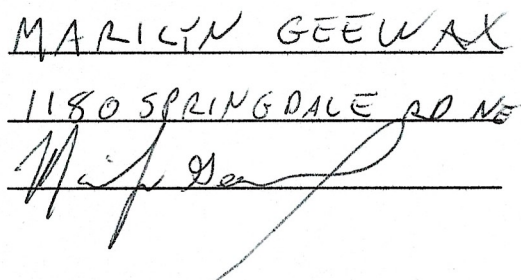 MARILYN GEEWAX
1180 SPRINGDALE RD NE